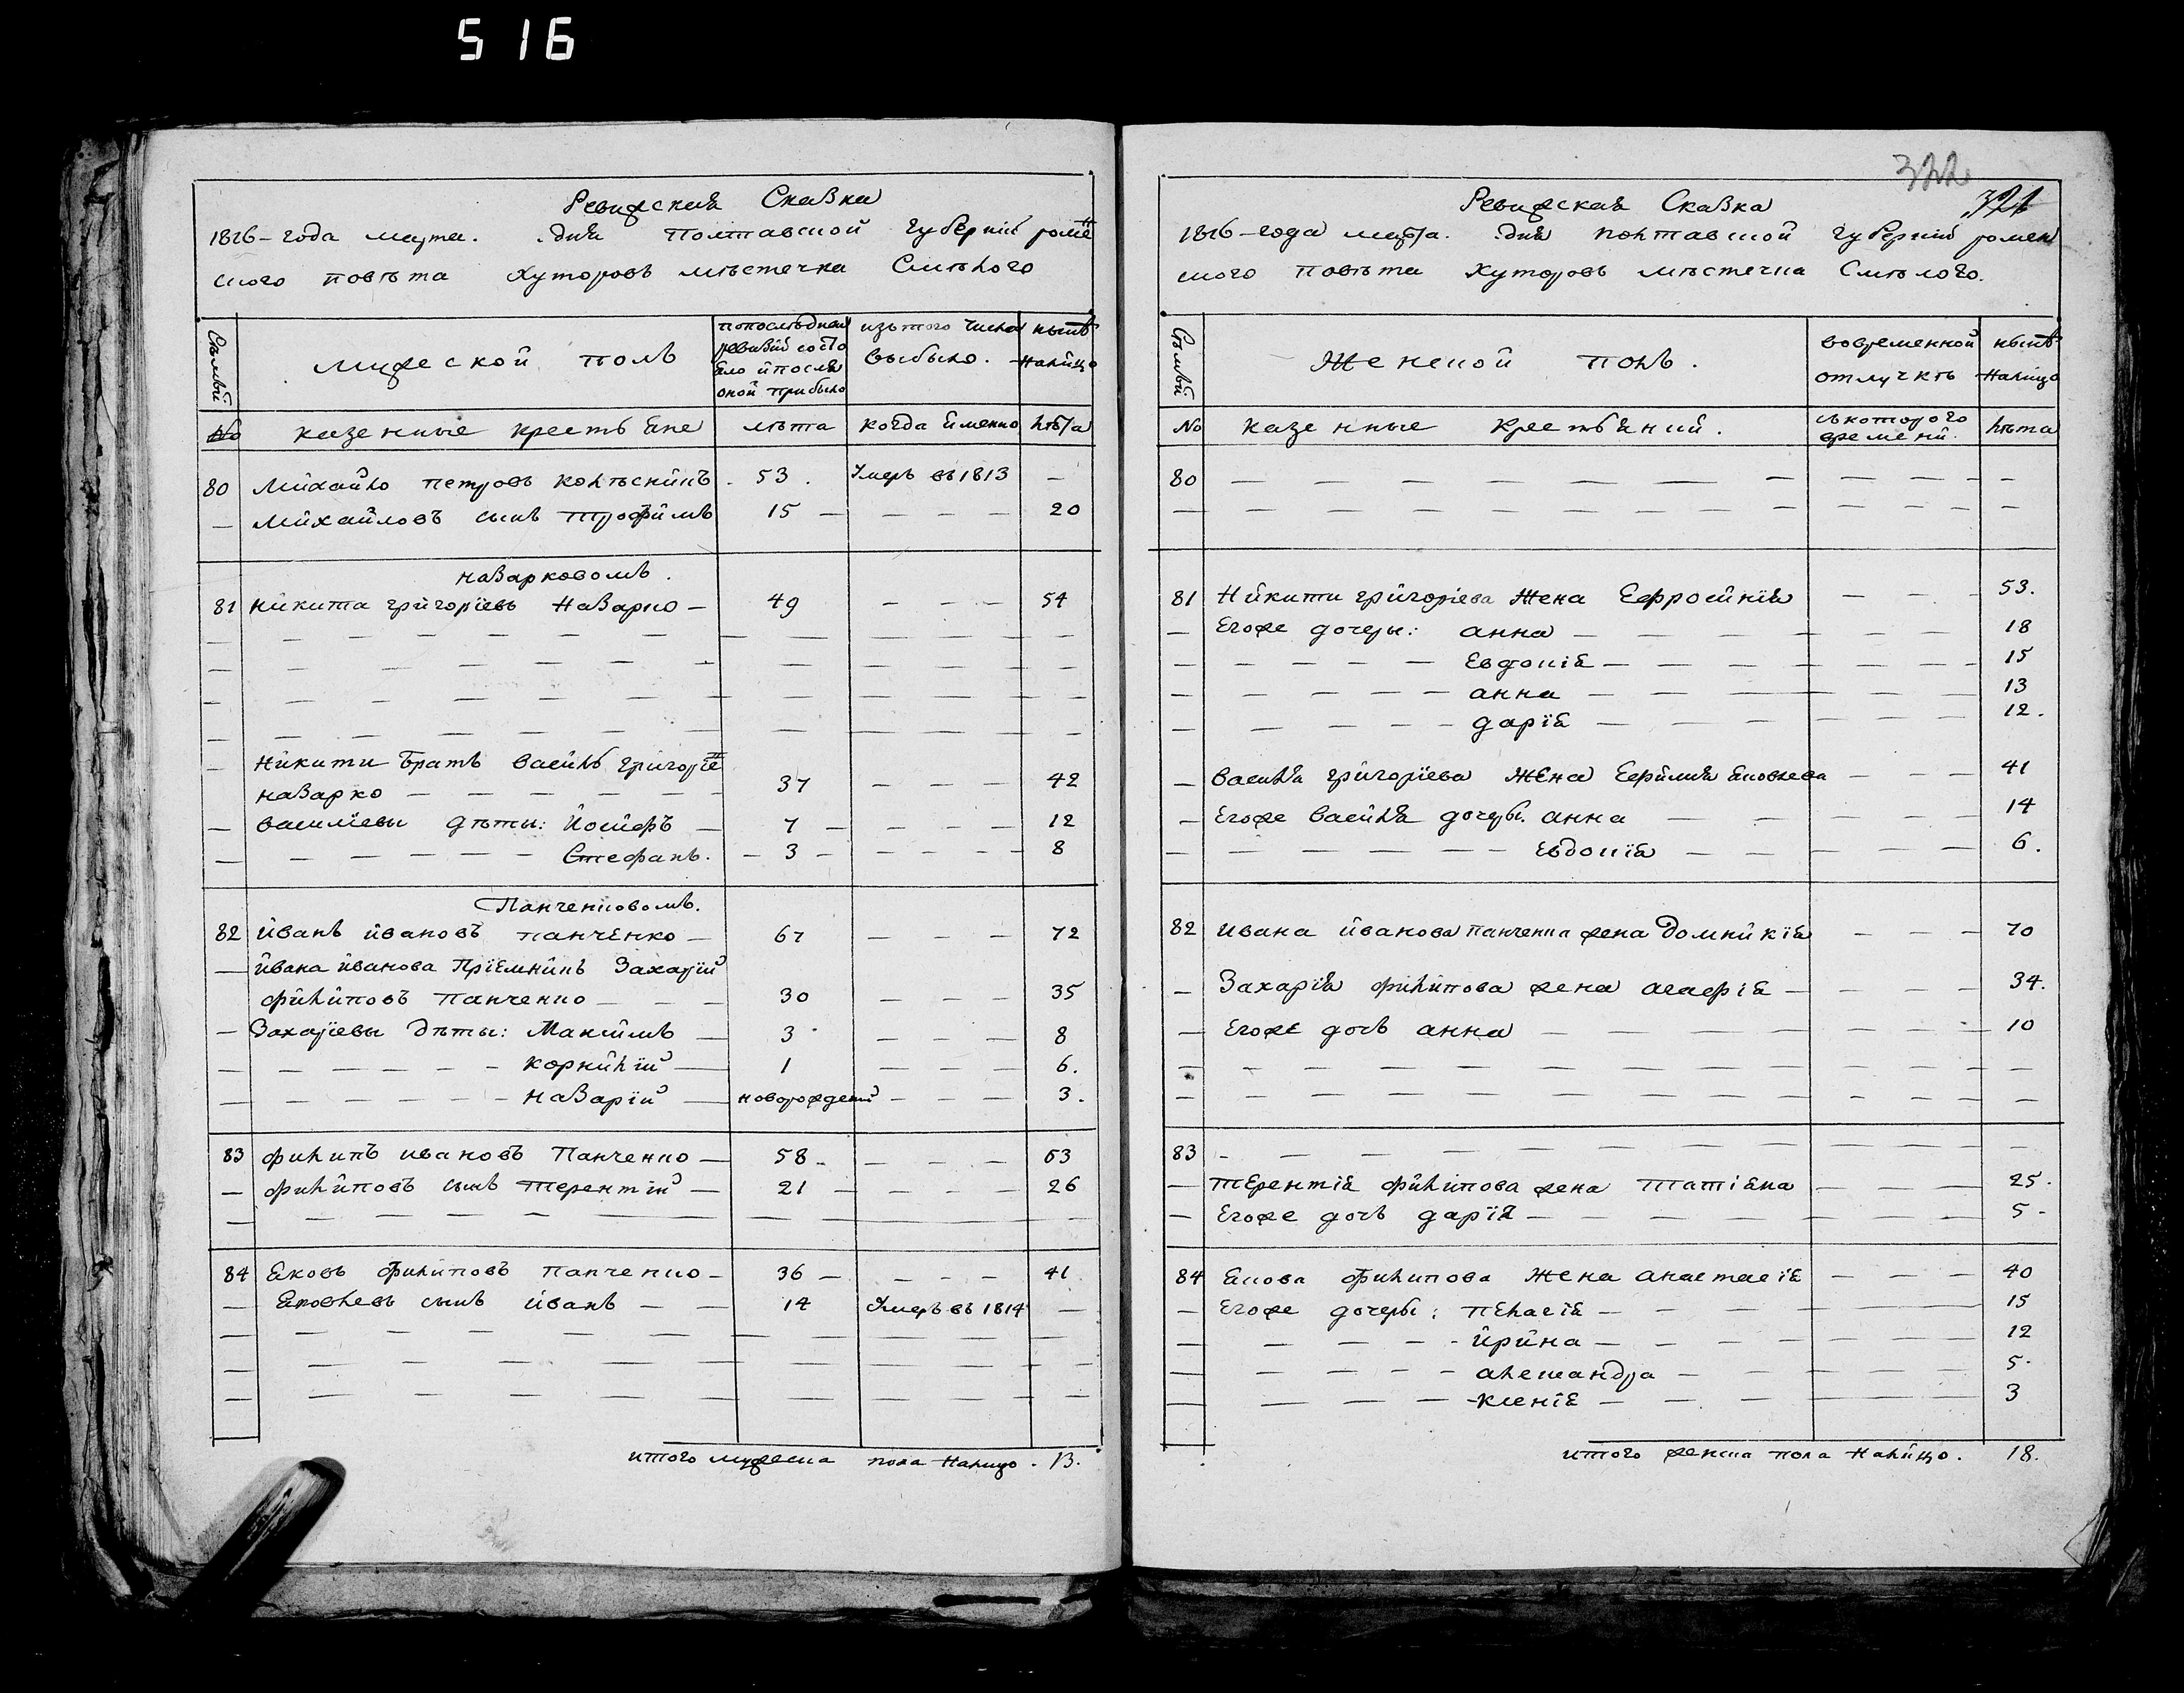 516
Ревижская Сказка
1816-года марта. дня Полтавской губернїи роме
ского повѣта Хуторовъ мѣстечка Смѣлого
Сѣмьи
мужеской полъ
попоследней ревизїи состо яло и после оной прибыло
изътого числа выбыло.
нынѣ налицо
№ казенные крестьяне лѣта когда именно лѣта
80 Михайло петровъ колѣсникъ 53. Умеръ въ 1813 —
— Михайловъ сынъ трофимъ 15 — — — — 20
наЗарковомъ.
81 никита григорїевъ Назарко — 49 — — — 54
— Никити братъ василь григорїе
назарко — — — — — — 37 — — — 42
— василїевы дѣты: Иосифъ — 7 — — — — 12
— — — — — — — Стефанъ. — 3 — — — — — 8
Панченковомъ.
82 иванъ ивановъ панченко — 67 — — — 72
— ивана иванова Прїемникъ Захарїй
филиповъ панченко — — — 30 — — — 35
— Захарїевы дѣты: Максимъ — 3 — — — 8
— — — — — — — корнилїй — 1 — — — 6.
— — — — — — — наЗарїй — новорожденїй — — — 3.
83 филипъ ивановъ Панченко — 58 — — — — 63
— филиповъ сынъ терентїй — 21 — — — — 26
84 яковъ филиповъ панченко — 36 — — — — 41
— яковлевъ сынъ иванъ — — 14 Умеръ въ 1814 —
итого мужеска пола налицо. 13.
322
321
Ревижская Сказка
1816-года марта. дня полтавской губернїи ромен
ского повѣта хуторовъ мѣстечка Смѣлого.
Сѣмьи
Женской полъ.
вовременной отлучкѣ
нынѣ налицо
№ казенные крестьянки. съкоторого времени. лѣта
80 — — — — — — — — — — —
81 Никити григорїева жена Ефросинїя — — — 53.
— Егоже дочеры: анна — — — — — — 18
— — — — — — Евдокїя — — — — — — 15
— — — — — — анна — — — — — — 13
— — — — — — дарїя — — — — — — 12.
— василя григорїева жена Ефимия яковлева — — — 41
— Егоже василя дочеры. анна — — — — — — 14
— — — — — — — Евдокїя — — — — — 6.
82 ивана иванова панченка жена домникїя — — — 70
— Захарїя филипова жена агафїя — — — — 34.
— Егоже дочь анна — — — — — — 10
83 — — — — — — — — — — —
— терентїя филипова жена татїяна — — — 25.
— Егоже дочь дарїя — — — — — — 5 —
84 якова филипова жена анастасїя — — — 40
— Егоже дочеры: пелагїя — — — — — — 15
— — — — — — ирина — — — — — — 12
— — — — — — александра — — — — — 5.
— — — — — — ксенїя — — — — — — 3
итого женска пола налицо. 18.